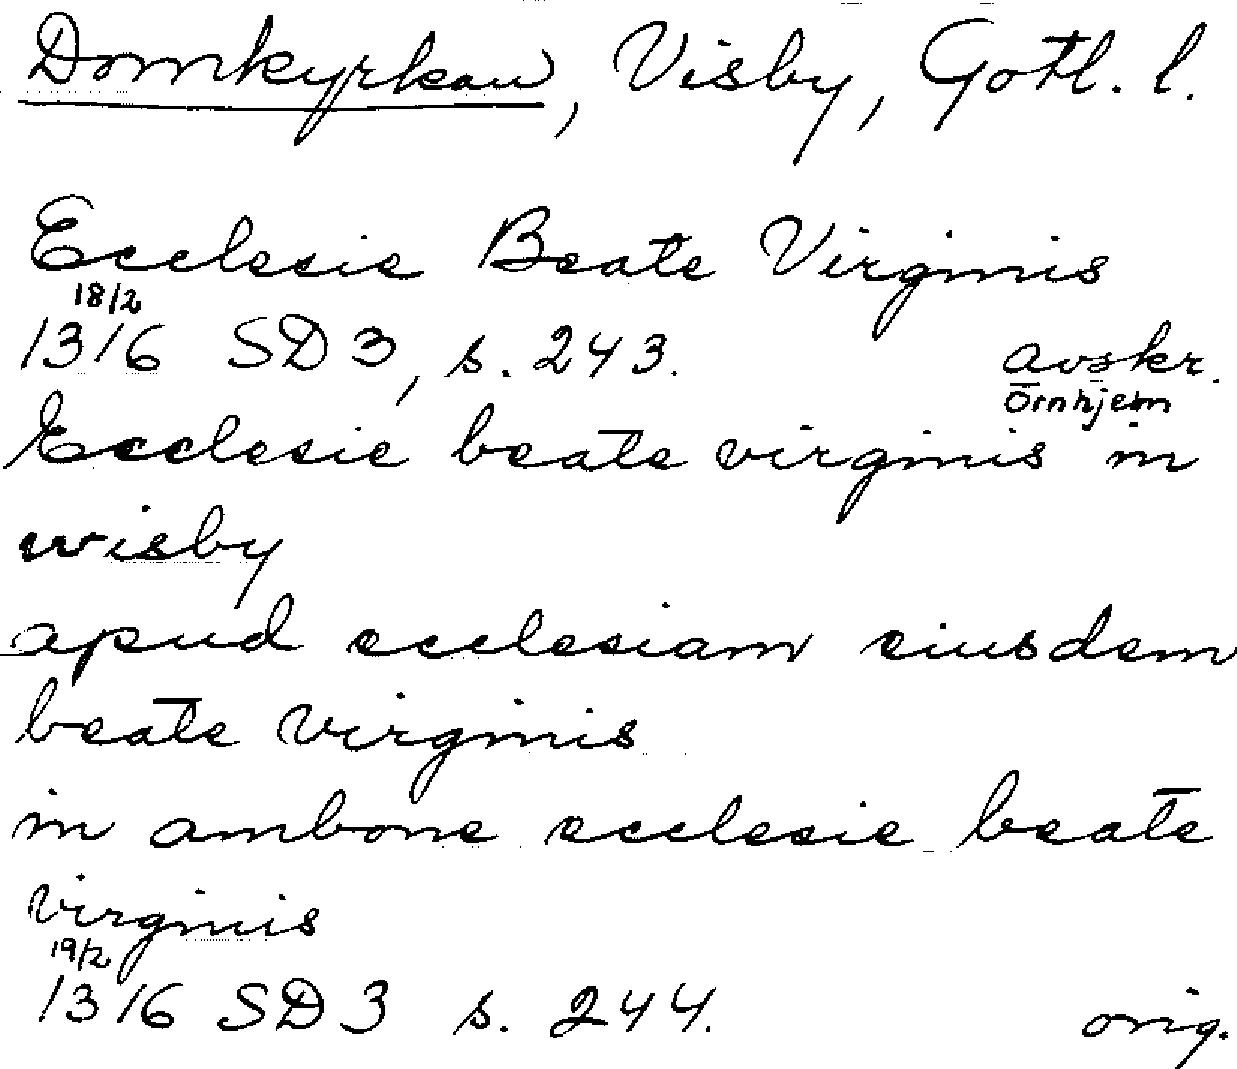 Domkyrkan, Visby, Gotl. l.
Ecclesie Beate Virginis
18/2
1316 SD 3, s. 243. avskr.
Örnhjelm
Ecclesie beate virginis in
wisby
apud ecclesiam eiusdem
beate virginis
in ambone ecclesie beate
virginis
19/2
1316 SD 3 s. 244. orig.